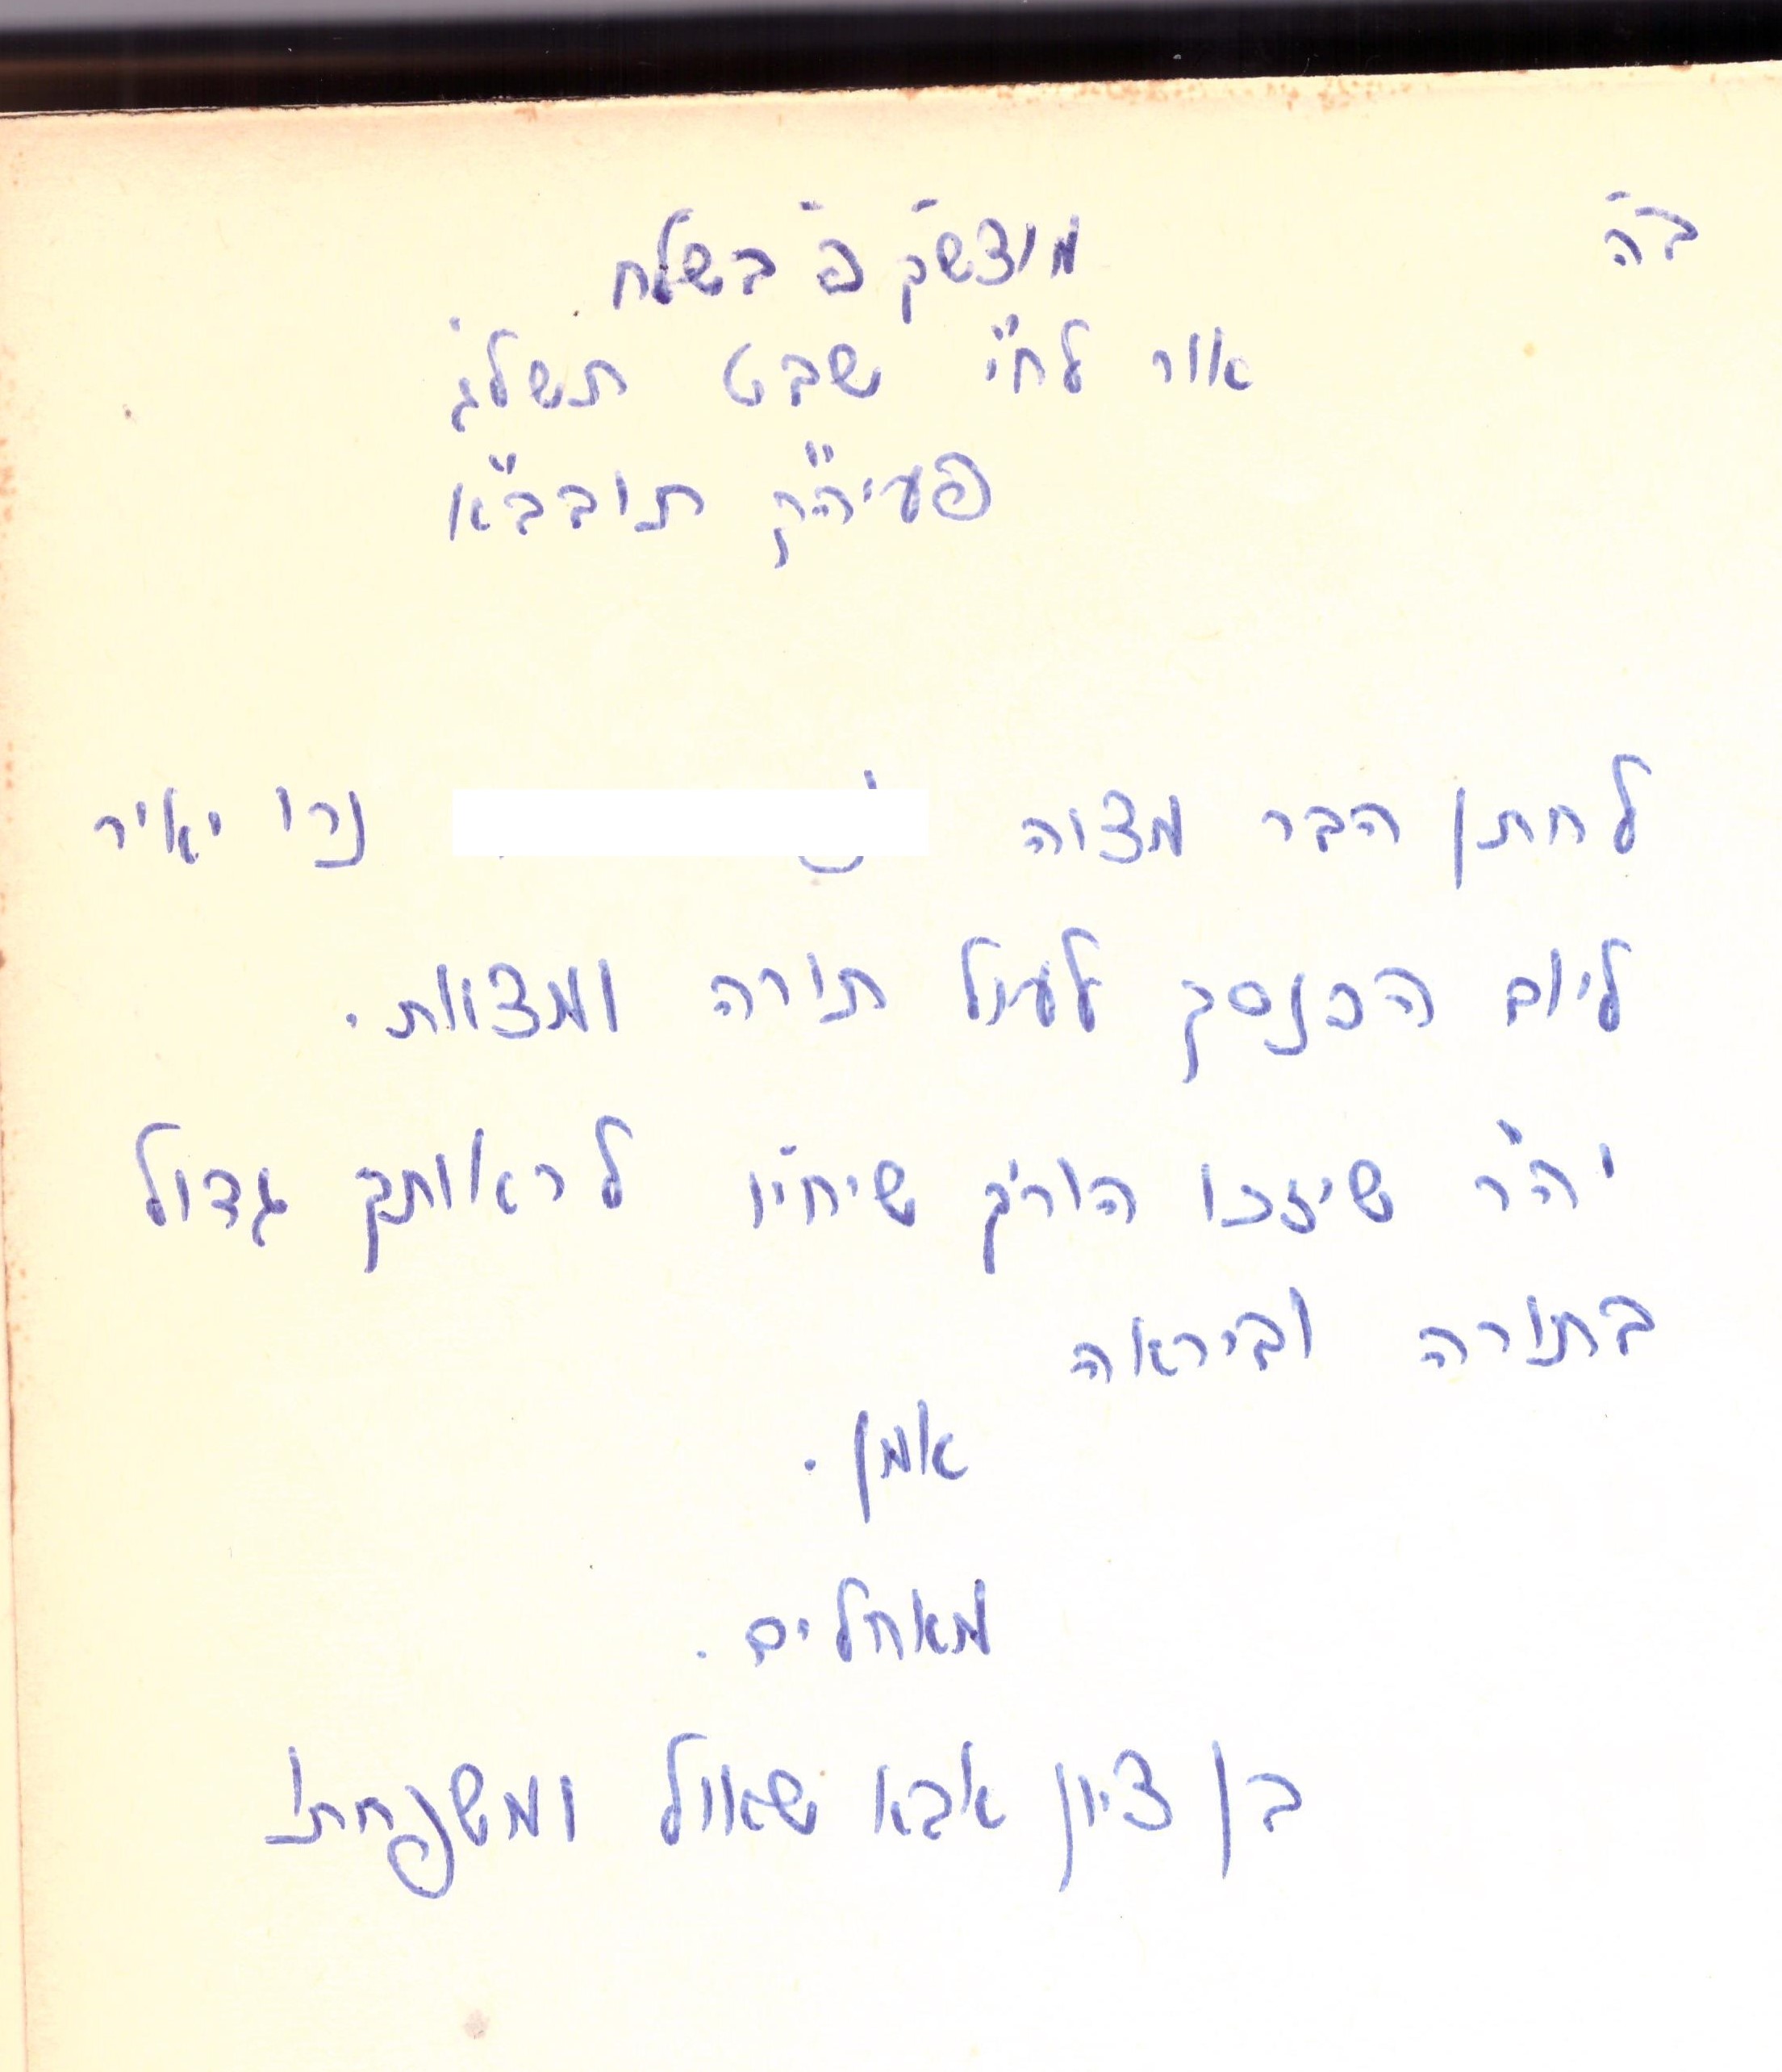 ב"ה
מוצש"ק פ' בשלח
אור לח"י שבט תשל"ג
פעיה"ק תובב"א
לחתן הבר מצוה נרו יאיר
ליום הכנסך לעול תורה ומצוות.
יה"ר שיזכו הורך שיחיו לראותך גדול
בתורה וביראה
אמן.
מאחלים.
בן ציון אבא שאול ומשפחתו